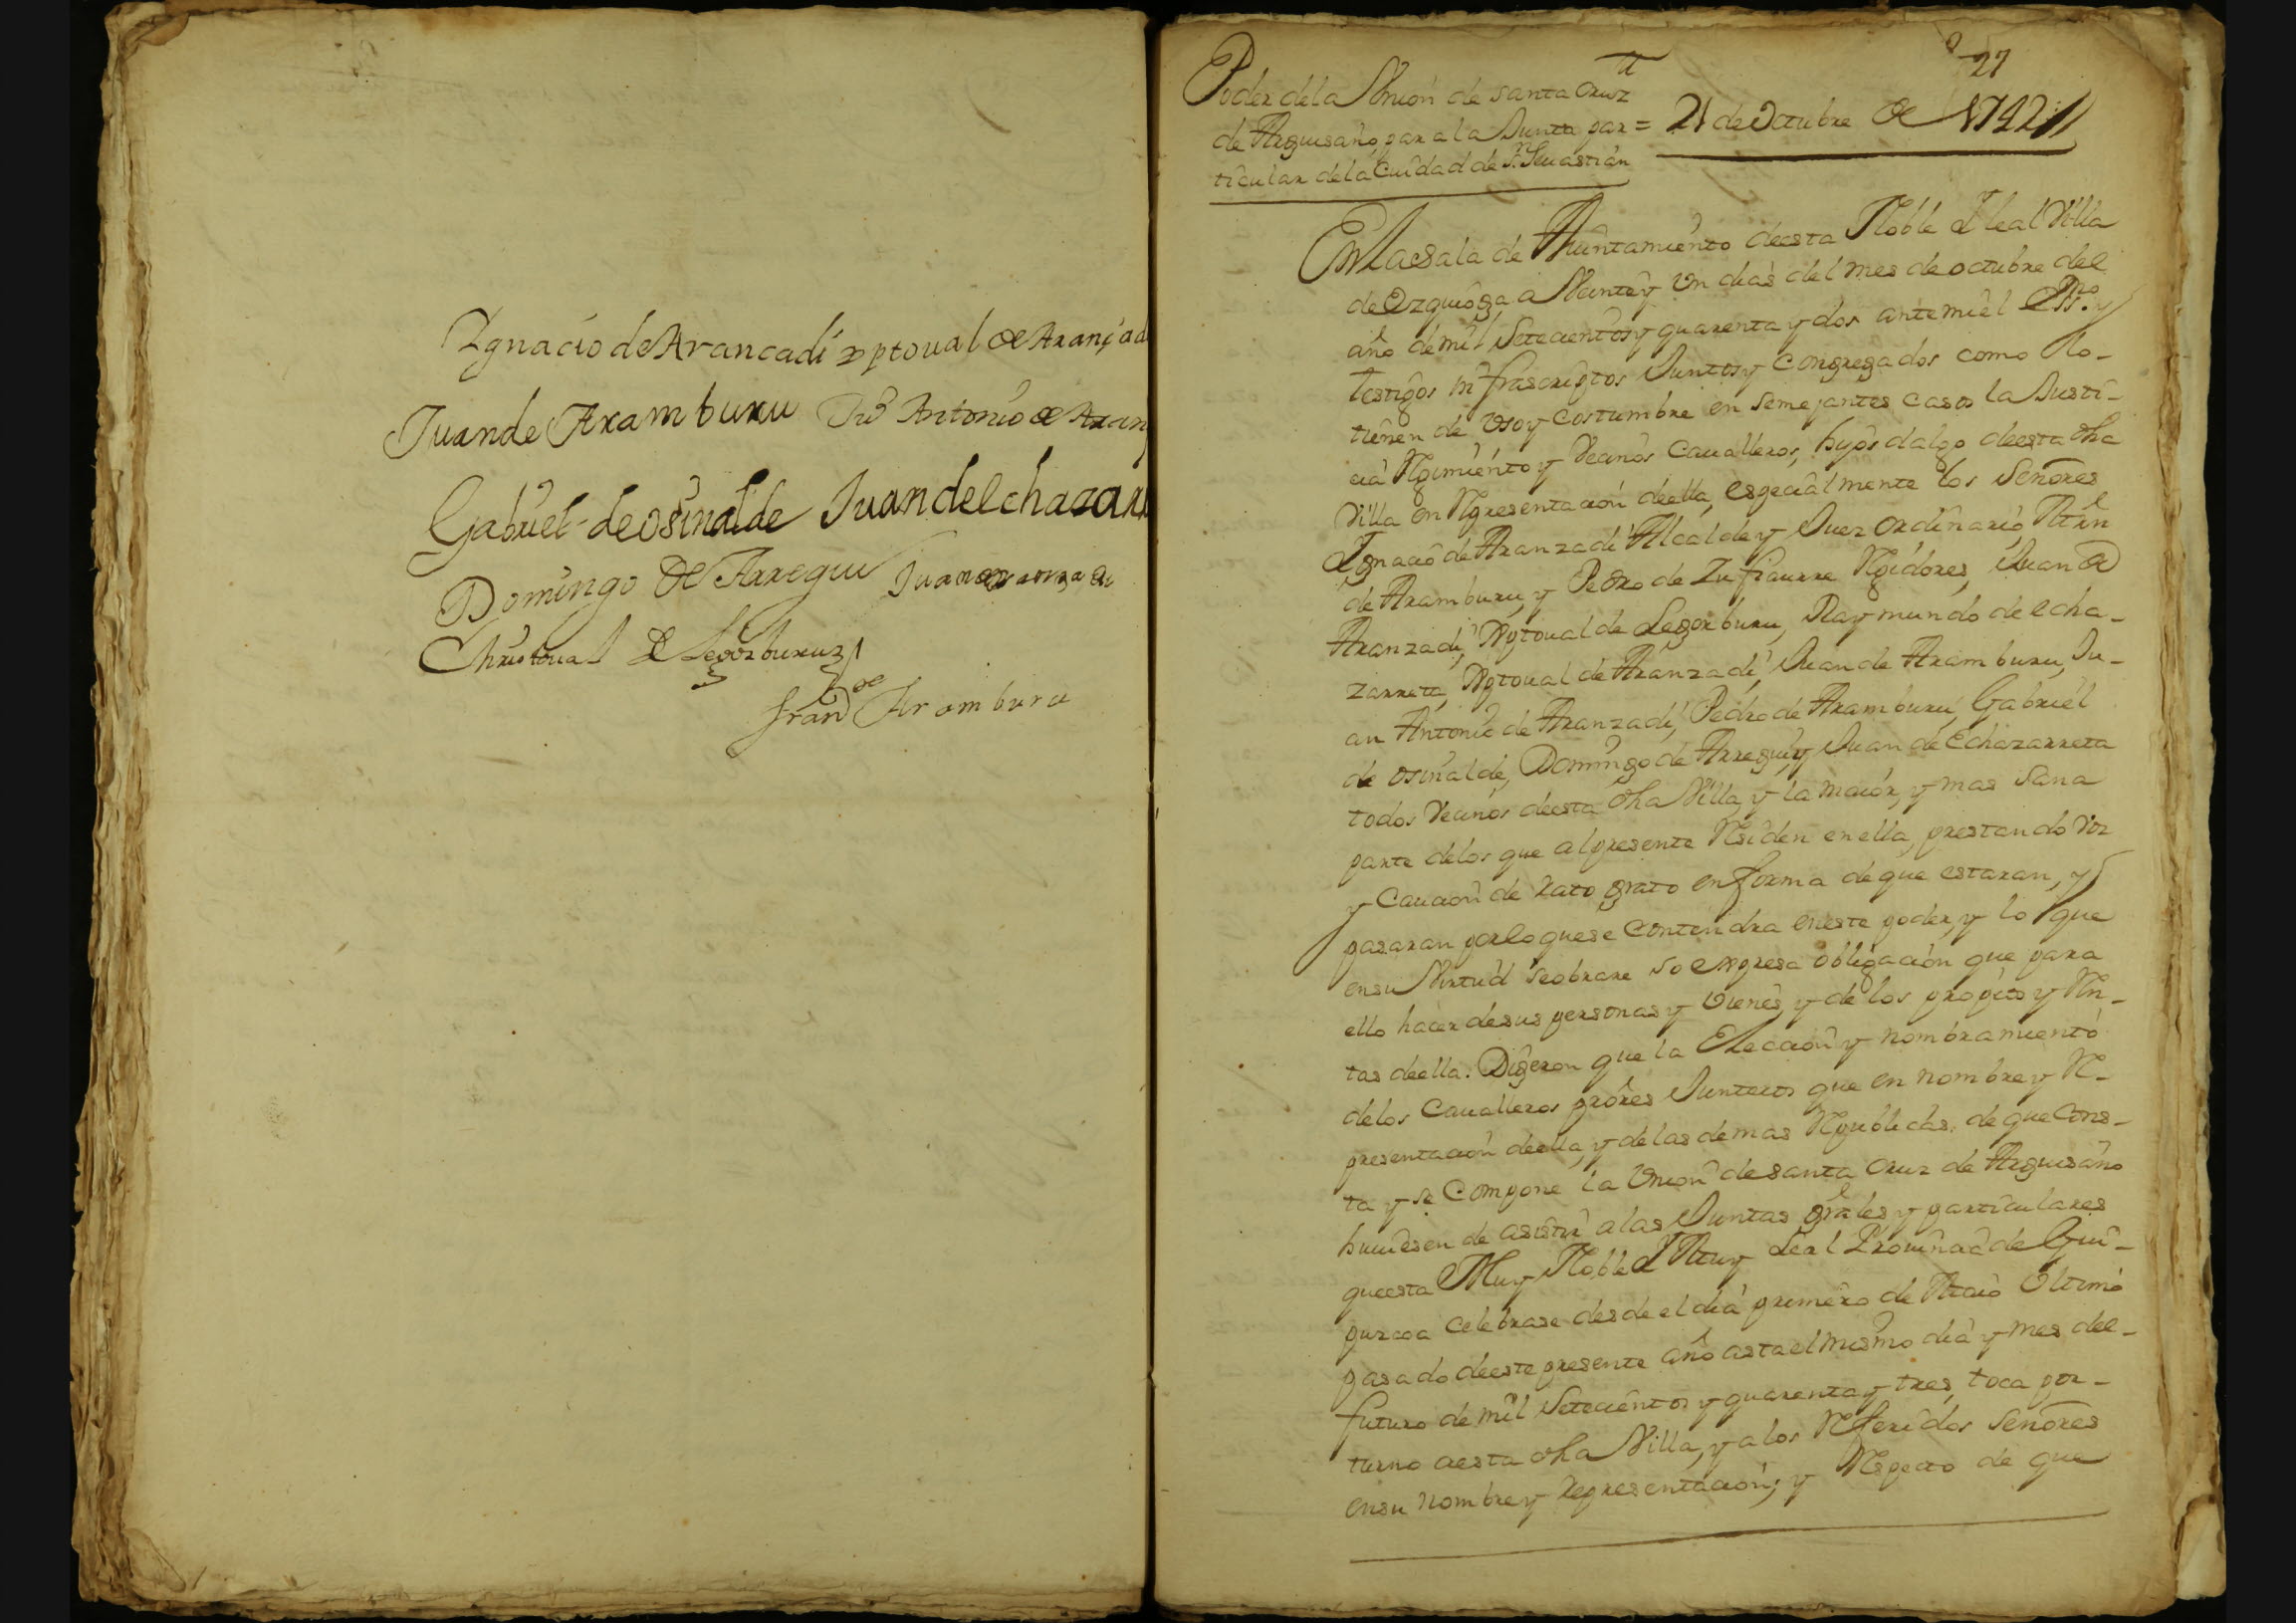 Ygnacio de Arancadi xptoual de Arançad
Juan de Aramburu Juº Antonio de Aran
Gabriel de osinalde Juan de lchazarr
Domingo de Arregui Juan de aranzadi
Christoual de Legorburu
Franco de Aramburu
27
Poder de la Vnion de santa Cruz
de Arguisano, para la Junta par=
ticular de la Ciudad de Sn Seuastian
21 de Octubre de 1742
En la Sala de Aiuntamiento de esta Noble Y leal Villa
de Ezquioga a Veinte y Vn dias del mes de octubre del
año de mil Setecientos y quarenta y dos ante mi el Essno. y
testigos infrascriptos Juntos y Congregados como lo-
tienen de Vso y costumbre en semejantes casos la Justi-
cia Regimiento y Vecinos Caualleros, hijos dalgo de esta dha
Villa en Representacion de ella, especialmente los Señores
Ygnacio de Aranzadi Alcalde y Juez ordinario, Mrn
de Aramburu, y Pedro de Zufiaurre Regidores, Juan de
Aranzadi, Xptoual de Legorburu, Raymundo de echa-
zarreta, Xptoual de Aranzadi, Juan de Aramburu, Ju-
an Antonio de Aranzadi, Pedro de Aramburu, Gabriel
de osinalde, Domingo de Arregui y Juan de Echazarreta
todos Vecinos de esta dha Villa, y la maior, y mas Sana
parte de los que al presente Residen en ella, prestando Voz
y Caucion de rato grato en forma de que estaran, y
pasaran por lo que se Contendra en este poder, y lo que
en su Virtud se obrare so expresa obligacion que para
ello hacen de sus personas y Vienes, y de los propios y Ren-
tas de ella. Digeron que la Eleccion y nombramiento
de los Caualleros prôres Junteros que en nombre y Re-
presentacion de ella, y de las demas Republicas, de que Cons-
ta y se Compone la Vnion de santa Cruz de Arguisano
huuiesen de asistir a las Juntas grales y particulares
que esta Muy Noble Y Muy Leal Prouincia de Gui-
puzcoa Celebrase desde el dia primero de Maio Vltimo
pasado de este presente año asta el mismo dia y mes del-
futuro de mil Setecientos y quarenta y tres, toca por-
turno a esta dha Villa, y a los Referidos Señores
en su nombre y Representacion; y Respecto de que